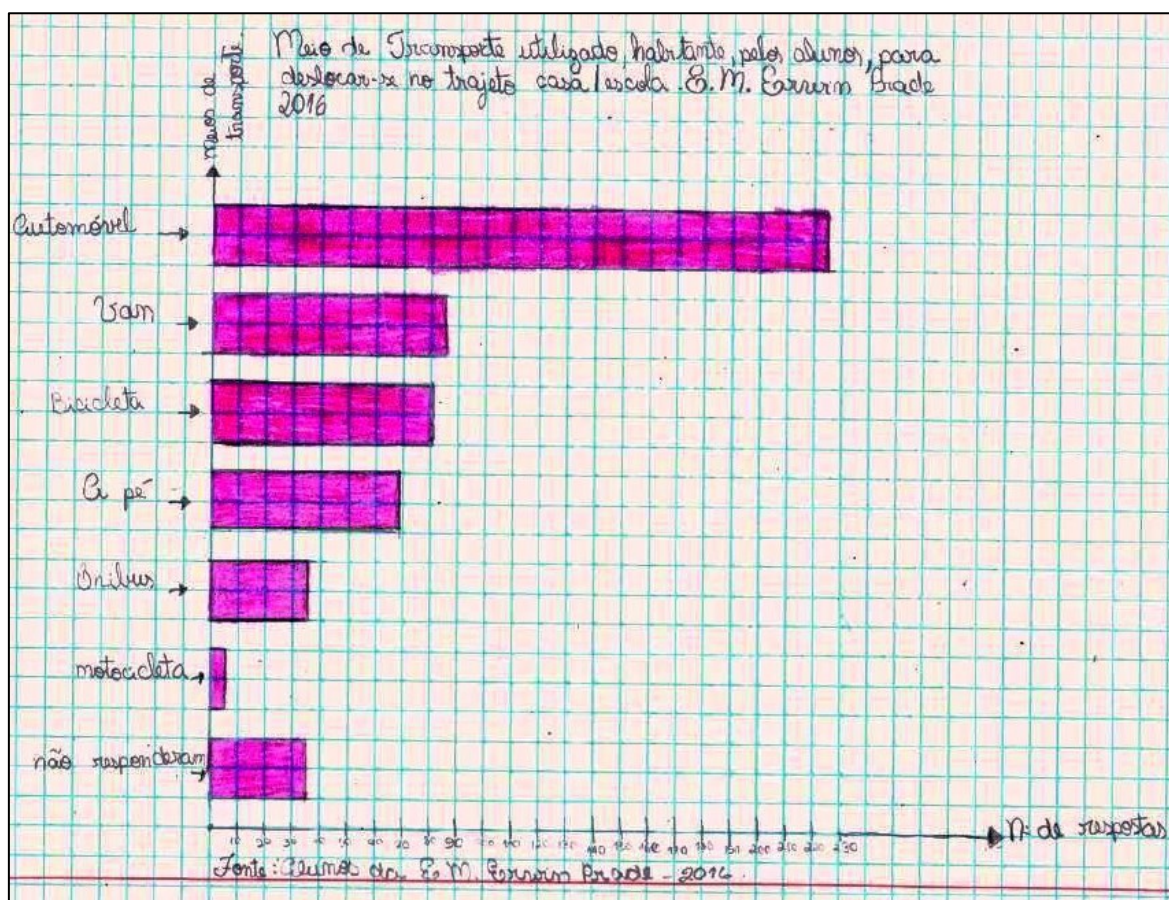 Meios de
transporte
Meio de Transporte utilizado, habitante, pelos alunos, para
deslocar-se no trajeto casa/escola. E.M. Erwin Prade
2016
Automóvel
Van
Bicicleta
A pé
Ônibus
motocicleta
não responderam
10 20 30 40 50 60 70 80 90 100 110 120 130 140 150 160 170 180 190 200 210 220 230
Nº de respostas
Fonte: Alunos da E.M. Erwin Prade - 2016.